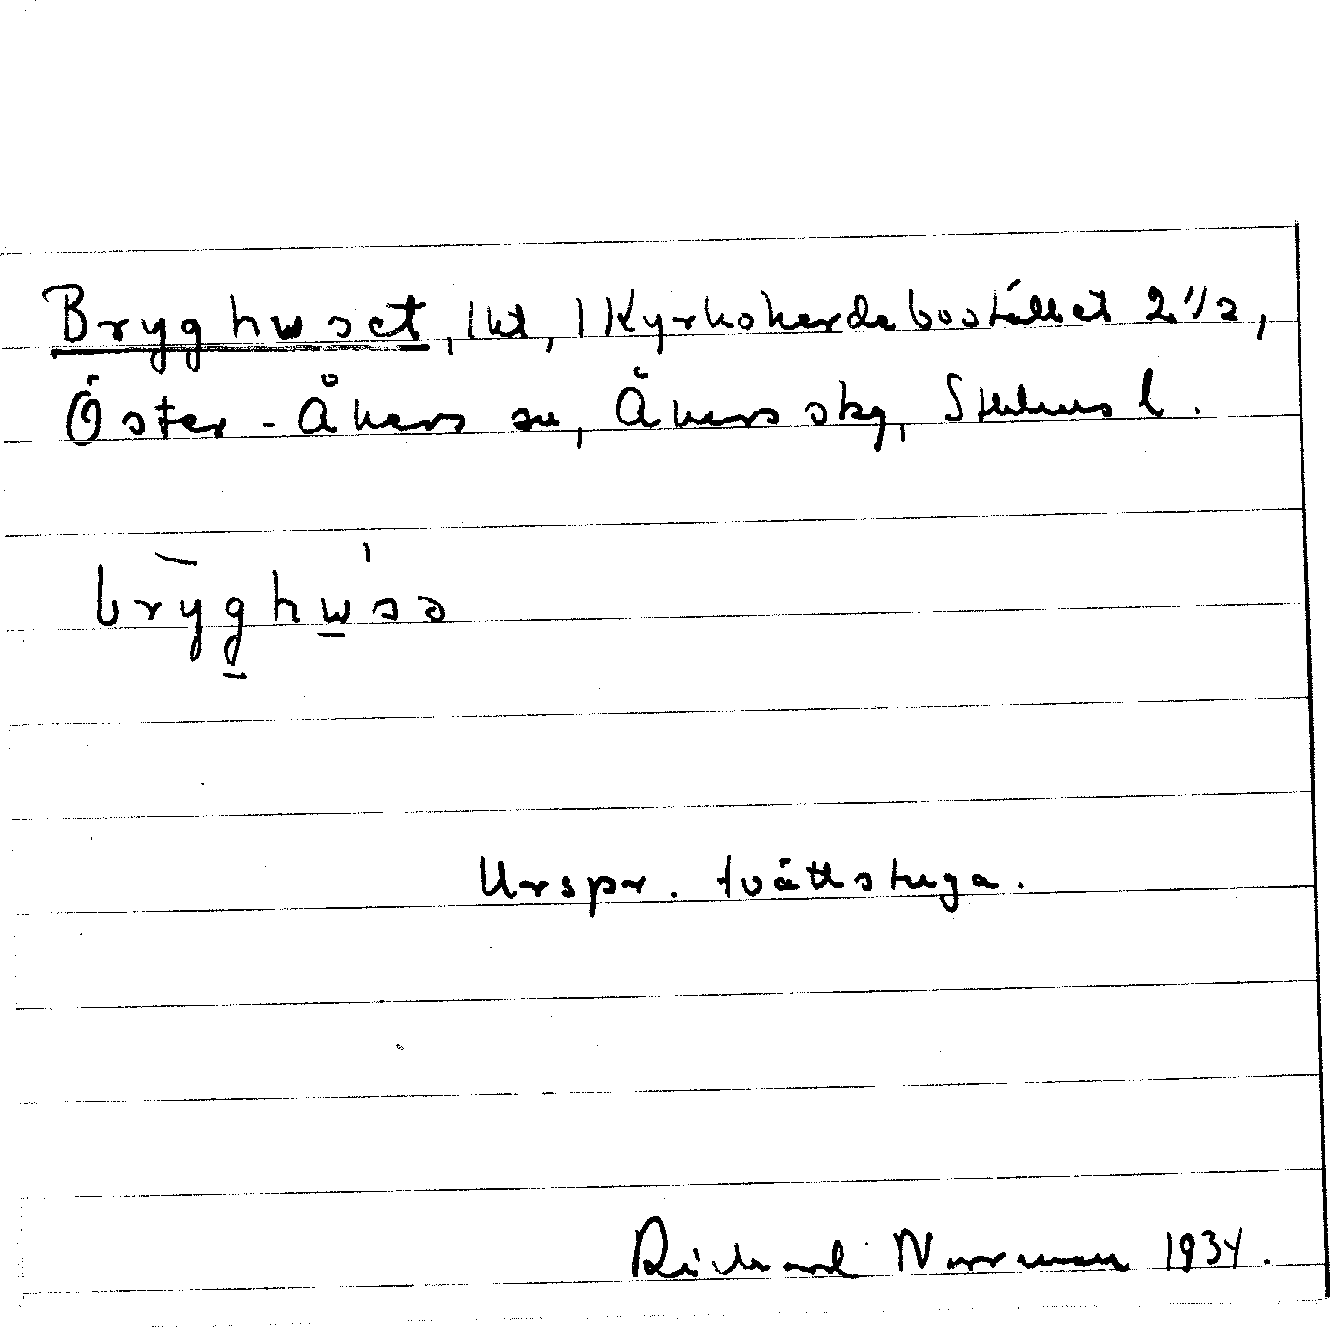 Bryghuset, lht, 1 Kyrkoherdebostället 2 1/2,
Öster-Åkers sn, Åkers skg, Sthlms l.
bryghusə
Urspr. tvättstuga.
Rickard Norrman 1934.